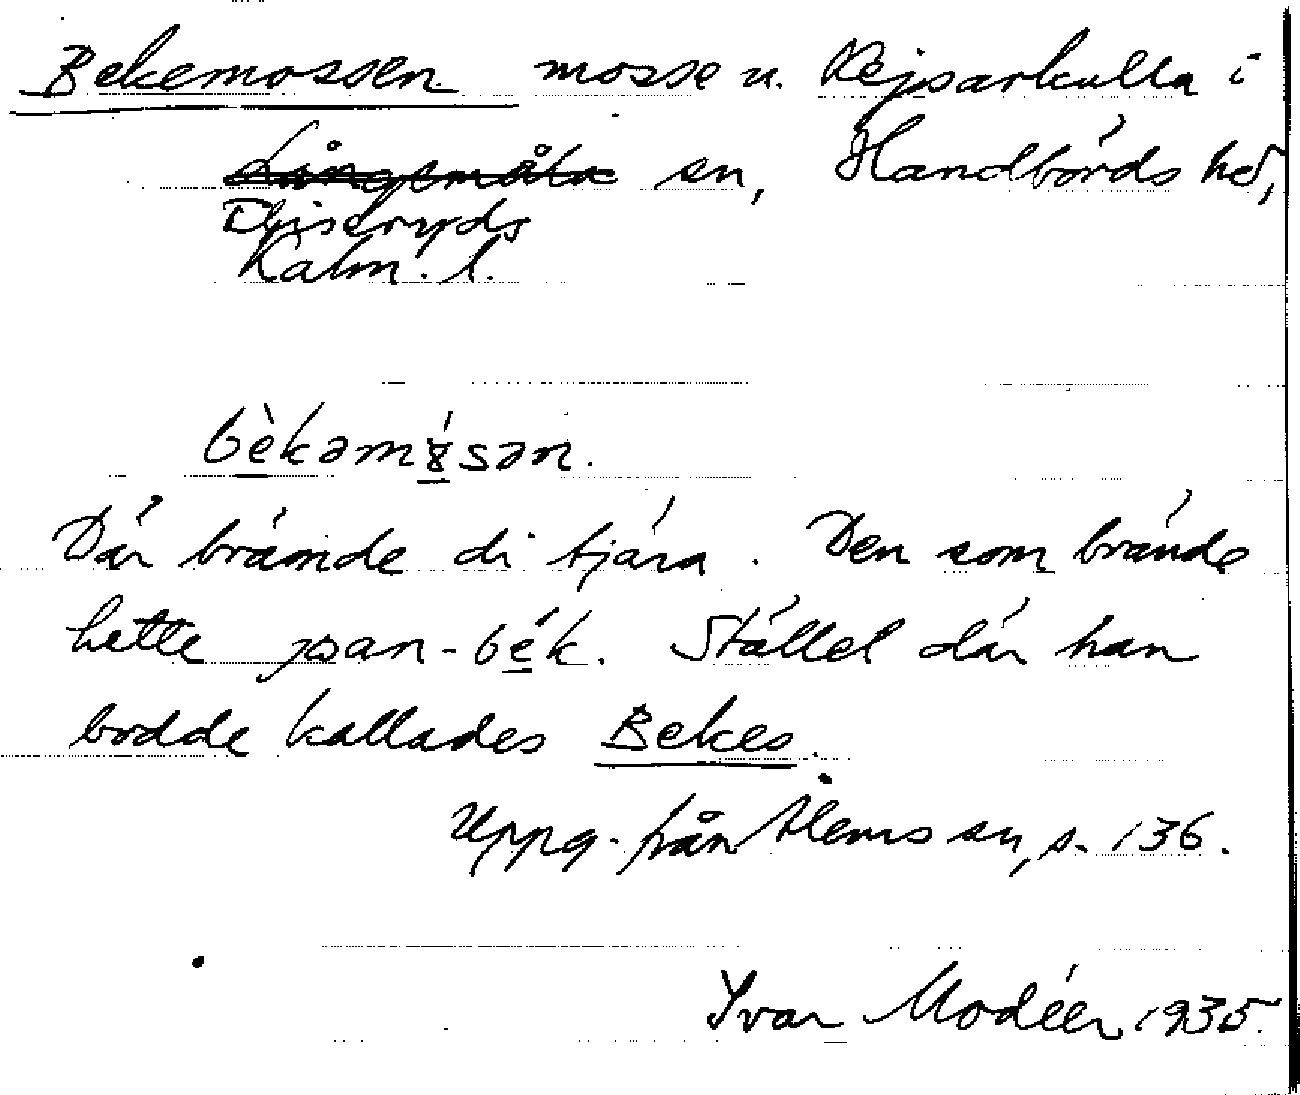 Bekemossen mosse u. Kejsarkulla i
Långemåla sn, Handbörds hd,
Kalm. l.
bèkəmɣ́sən.
Där brände di tjära. Den som brände
hette jsan-bék. Stället där han
bodde kallades Bekes.
Uppg. från Ålems sn, s. 136.
Yvar Modéer 1935.